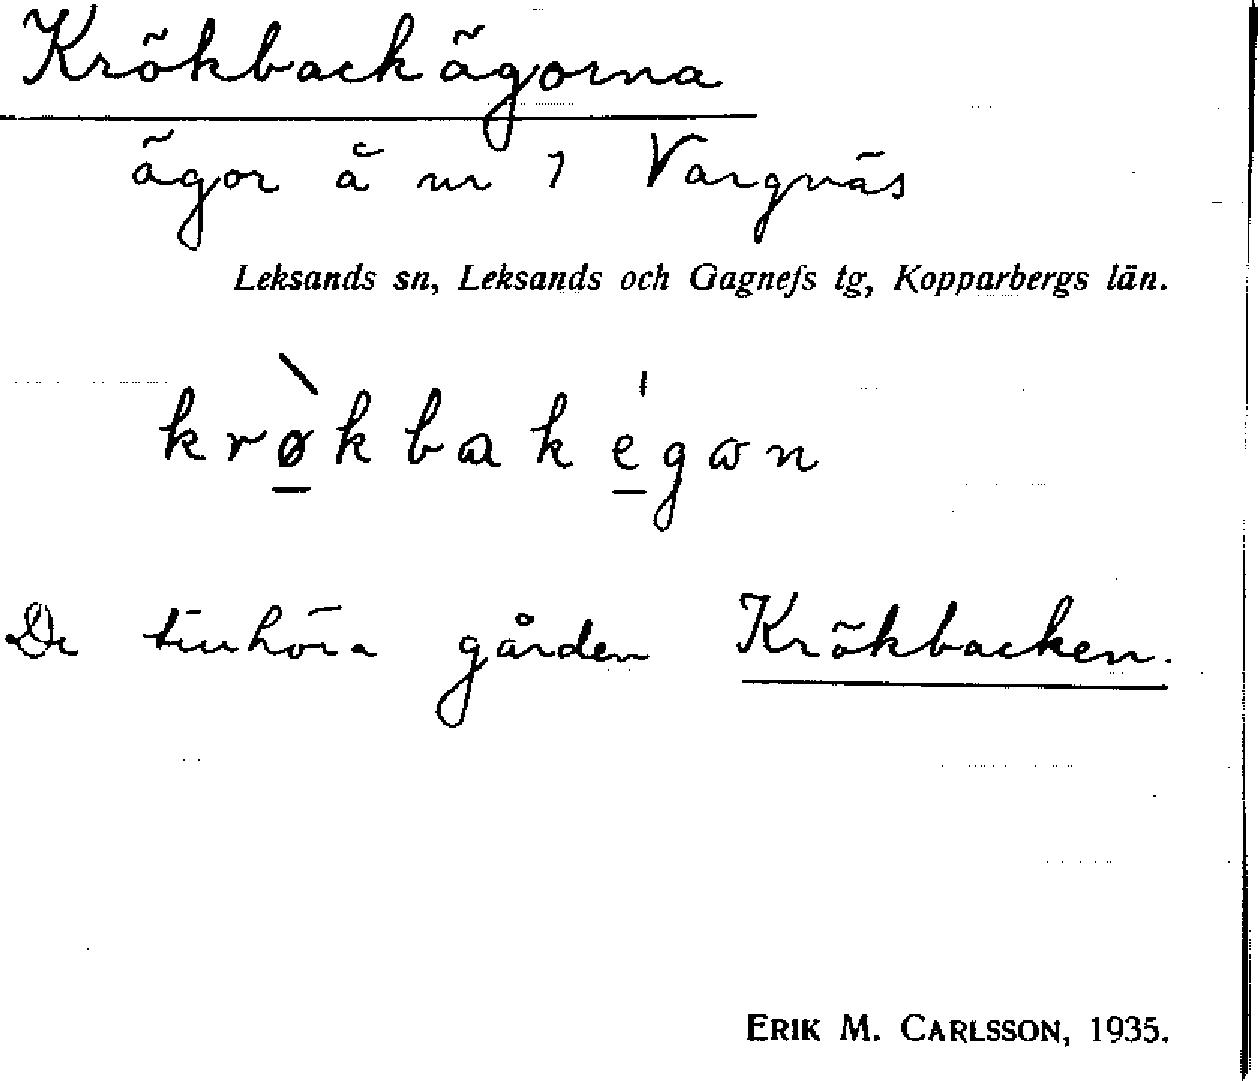 Krökbackägorna
ägor å nr 1 Vargnäs
Leksands sn, Leksands och Gagnefs tg, Kopparbergs län.
krø̱̀kbake̱̍gɷn
De tillhöra gården Krökbacken.
ERIK M. CARLSSON, 1935.